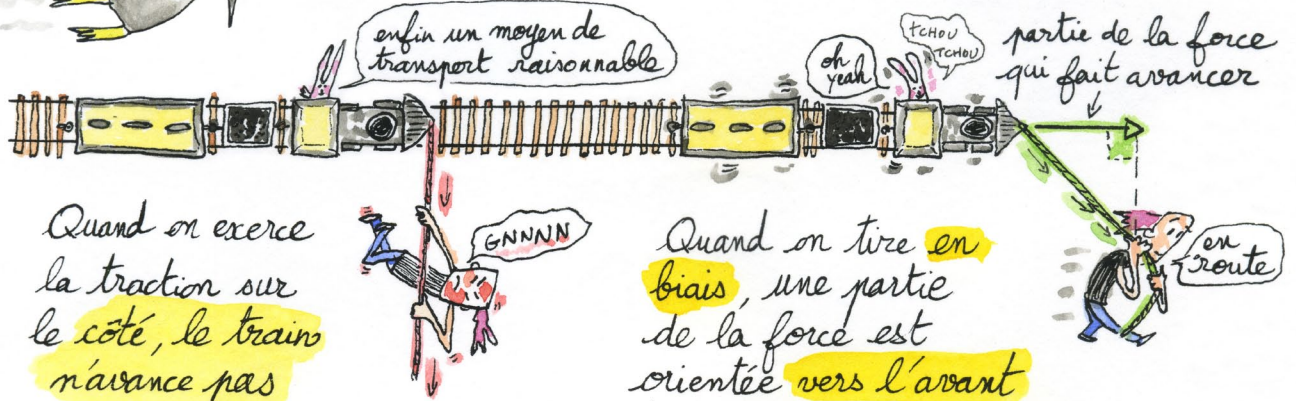 enfin un moyen de
transport raisonnable
oh
yeah
TCHOU
TCHOU
partie de la force
qui fait avancer
Quand on exerce
la traction sur
le côté, le train
n'avance pas
GNNNN
Quand on tire en
biais, une partie
de la force est
orientée vers l'avant
en
route